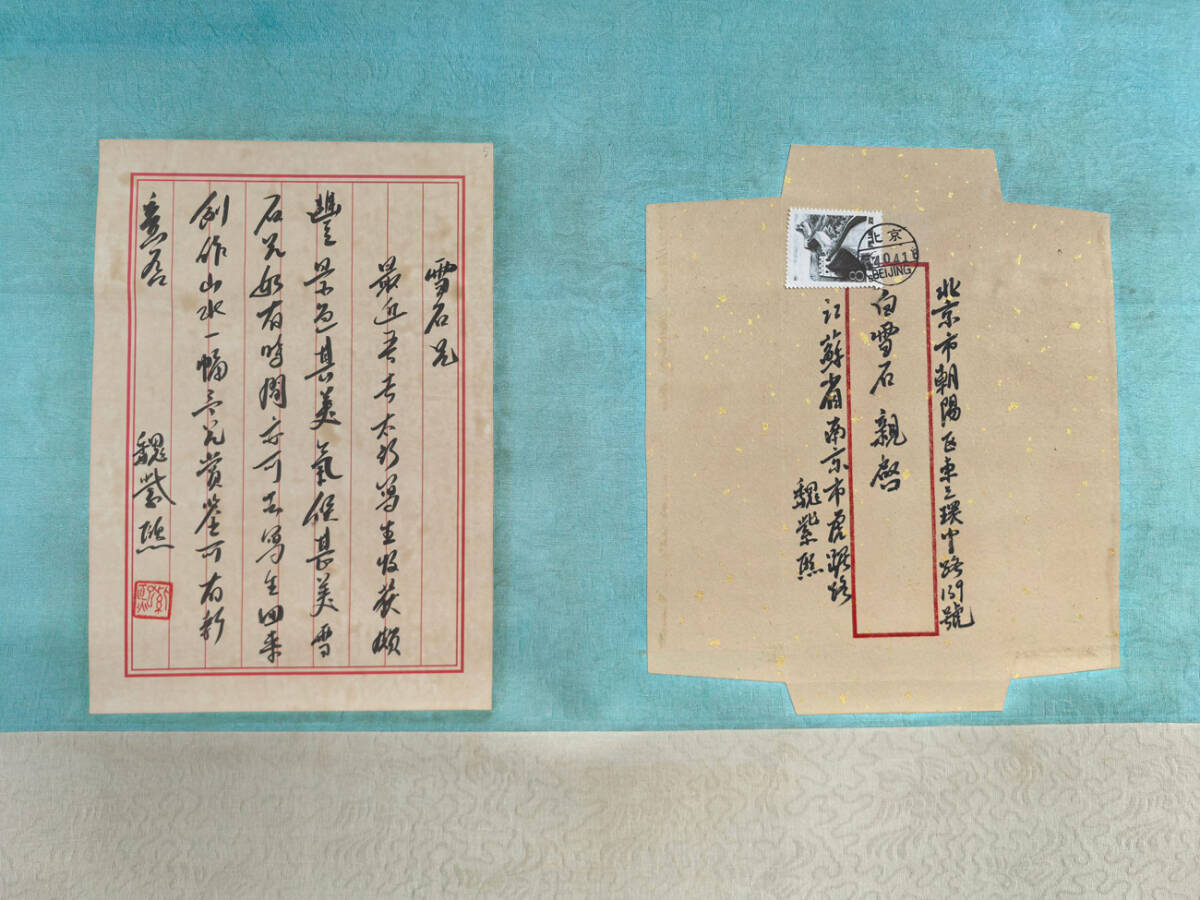 雪石兄
最近吾去太行寫生收获頗
豐景色甚美氣候甚美雪
石兄如有時間亦可去寫生回來
創作山水一幅与兄賞鉴可有新
意否
魏紫熙
北京市朝陽区東三環中路139號
白雪石 親啓
江蘇省南京市虎踞路
魏紫熙
北京
BEIJING
8